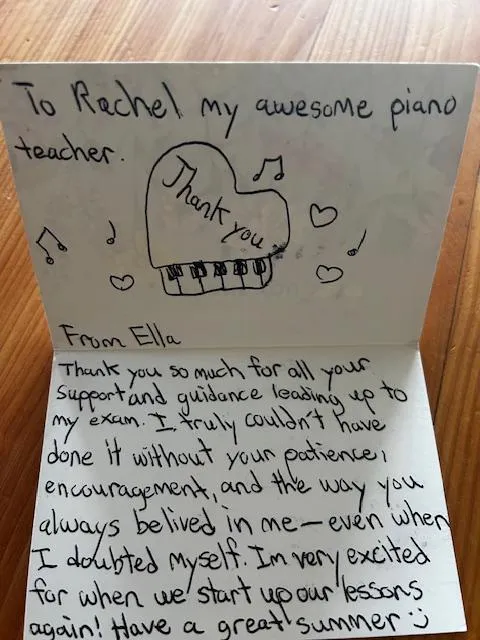 To Rachel my awesome piano
teacher.
Thank you
From Ella
Thank you so much for all your
support and guidance leading up to
my exam. I truly couldn't have
done it without your patience,
encouragement, and the way you
always belived in me — even when
I doubted myself. Im very excited
for when we start up our lessons
again! Have a great summer :)